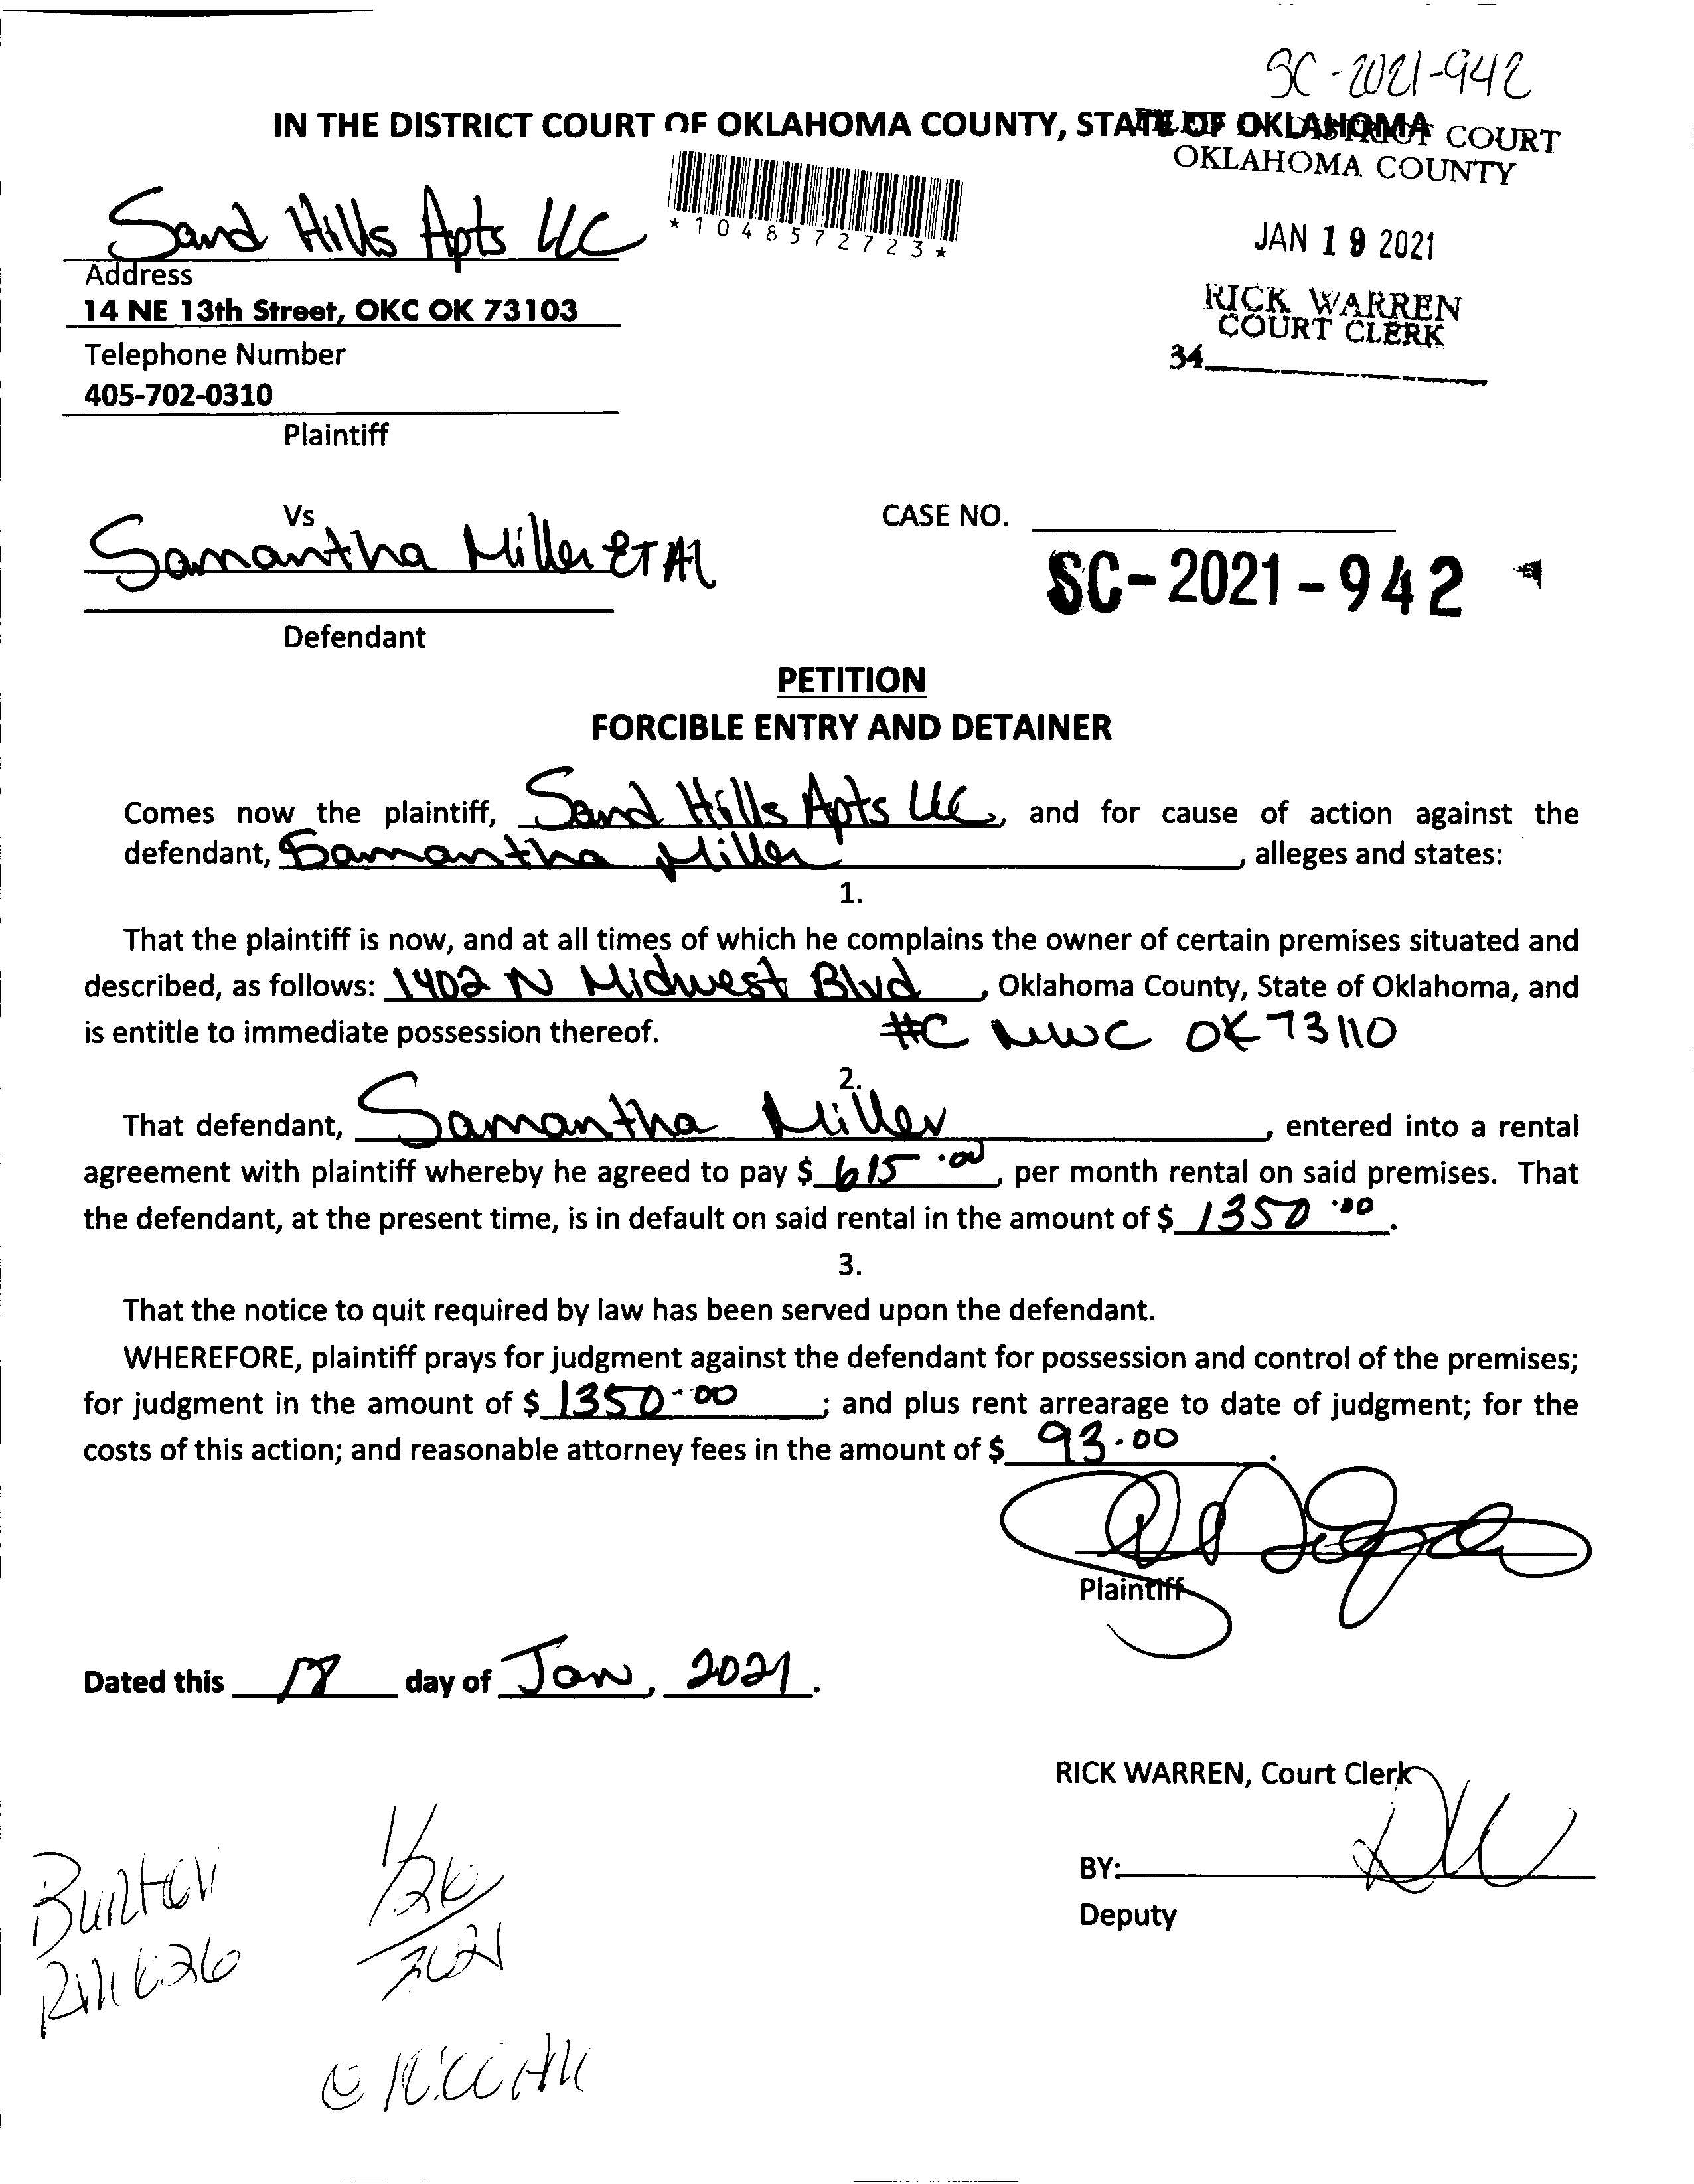 SC-2021-942
IN THE DISTRICT COURT OF OKLAHOMA COUNTY, STATE OF OKLAHOMA
FILED IN DISTRICT COURT
OKLAHOMA COUNTY
JAN 19 2021
RICK WARREN
COURT CLERK
34
*1048572723*
Sand Hills Apts LLC
Address
14 NE 13th Street, OKC OK 73103
Telephone Number
405-702-0310
Plaintiff
Vs
Samantha Miller ET Al
Defendant
CASE NO.
SC-2021-942
PETITION
FORCIBLE ENTRY AND DETAINER
Comes now the plaintiff, Sand Hills Apts LLC, and for cause of action against the
defendant, Samantha Miller, alleges and states:
1.
That the plaintiff is now, and at all times of which he complains the owner of certain premises situated and
described, as follows: 1402 N Midwest Blvd, Oklahoma County, State of Oklahoma, and
is entitle to immediate possession thereof. #C MWC OK 73110
2.
That defendant, Samantha Miller, entered into a rental
agreement with plaintiff whereby he agreed to pay $ 615.00, per month rental on said premises. That
the defendant, at the present time, is in default on said rental in the amount of $ 1350.00.
3.
That the notice to quit required by law has been served upon the defendant.
WHEREFORE, plaintiff prays for judgment against the defendant for possession and control of the premises;
for judgment in the amount of $ 1350.00; and plus rent arrearage to date of judgment; for the
costs of this action; and reasonable attorney fees in the amount of $ 93.00.
Plaintiff
Dated this day of Jan, 2021.
RICK WARREN, Court Clerk
BY:
Deputy
1/26
2021